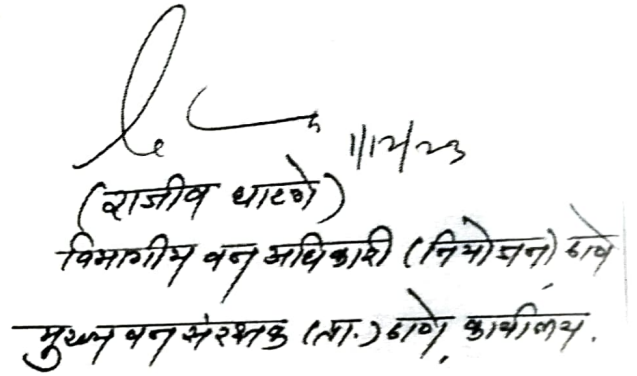 1/12/23
(राजीव घाटगे)
विभागीय वन अधिकारी (नियोजन) ठाणे
मुख्य वन संरक्षक (प्रा.) ठाणे, कार्यालय.